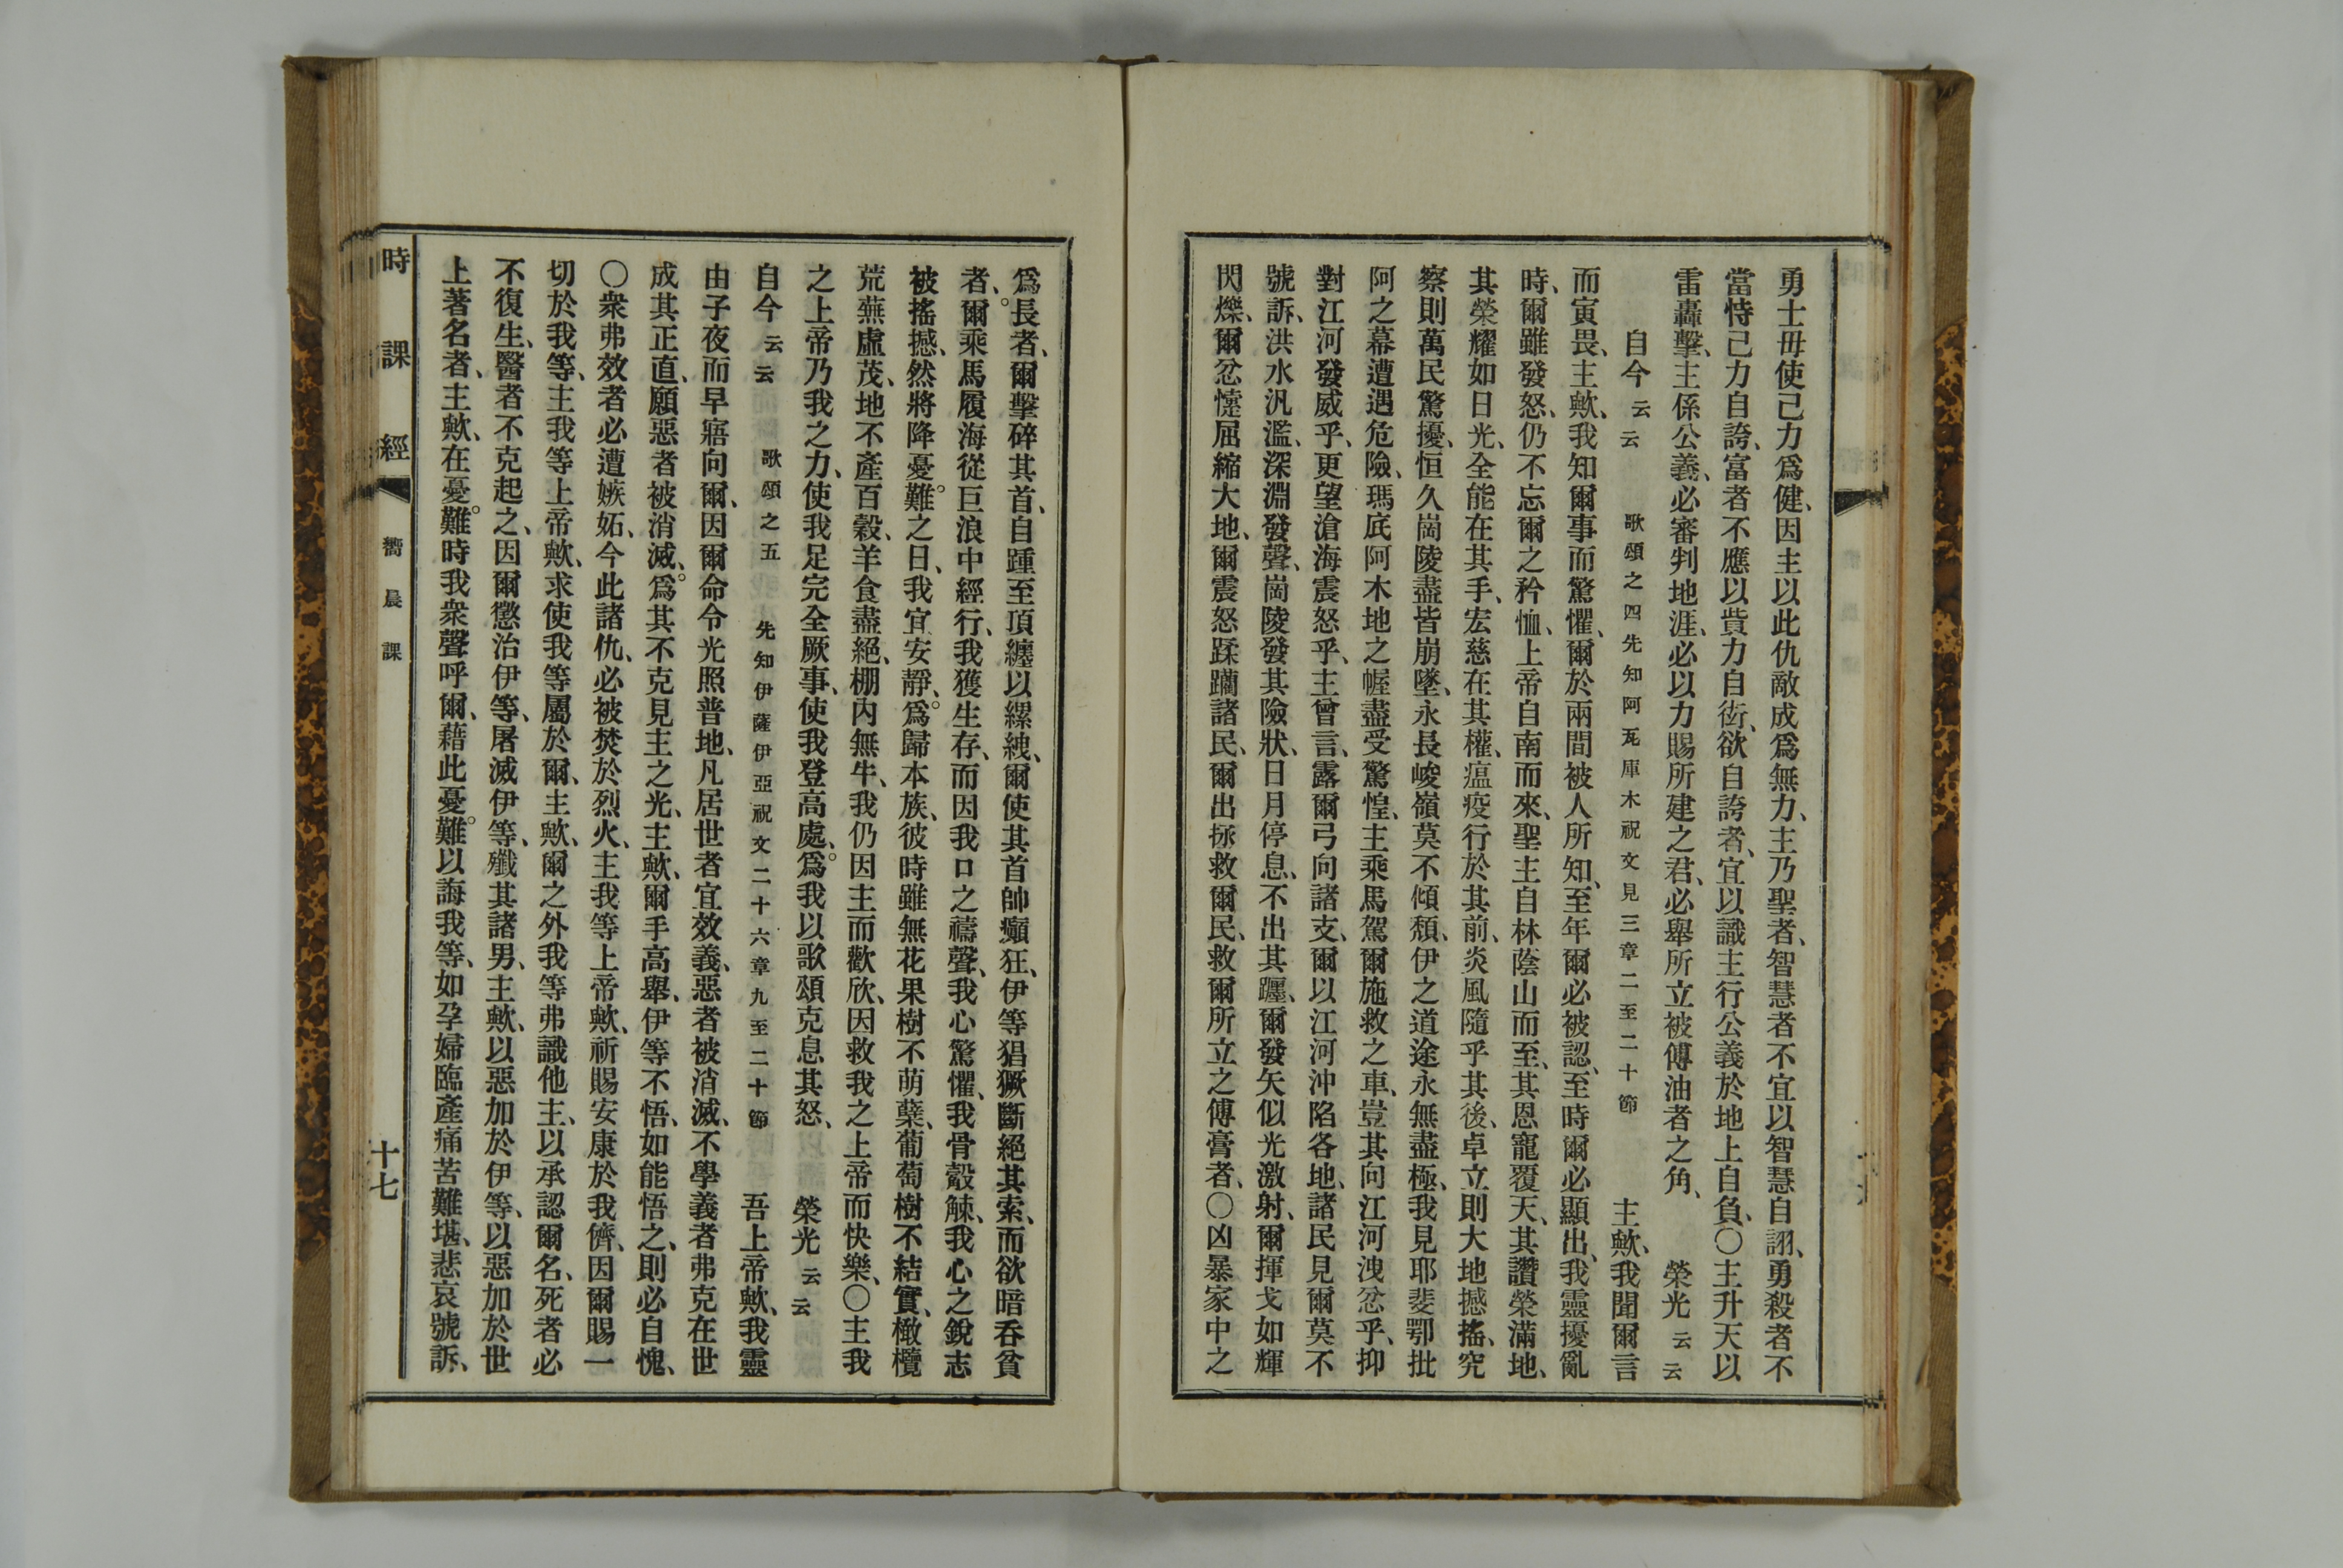 勇士毋使己力爲健、因主以此仇敵成爲無力、主乃聖者、智慧者不宜以智慧自詡、勇殺者不
當恃己力自誇、富者不應以貲力自衒、欲自誇者、宜以識主行公義於地上自負、〇主升天以
雷轟擊、主係公義、必審判地涯、必以力賜所建之君、必舉所立被傅油者之角、 榮光云云
自今云云 歌頌之四先知阿瓦庫木祝文見三章二至二十節 主歟、我聞爾言
而寅畏、主歟、我知爾事而驚懼、爾於兩間被人所知、至年爾必被認、至時爾必顯出、我靈擾亂
時、爾雖發怒、仍不忘爾之矜恤、上帝自南而來、聖主自林蔭山而至、其恩寵覆天、其讚榮滿地、
其榮耀如日光、全能在其手、宏慈在其權、瘟疫行於其前、炎風隨乎其後、卓立則大地撼搖、究
察則萬民驚擾、恒久崗陵盡皆崩墜、永長峻嶺莫不傾頹、伊之道途永無盡極、我見耶斐鄂批
阿之幕遭遇危險、瑪底阿木地之幄盡受驚惶、主乘馬駕爾施救之車、豈其向江河洩忿乎、抑
對江河發威乎、更望滄海震怒乎、主曾言、露爾弓向諸支、爾以江河沖陷各地、諸民見爾莫不
號訴、洪水汎濫、深淵發聲、崗陵發其險狀、日月停息、不出其躔、爾發矢似光激射、爾揮戈如輝
閃爍、爾忿懥屈縮大地、爾震怒蹂躪諸民、爾出拯救爾民、救爾所立之傅膏者、〇凶暴家中之
爲長者、爾擊碎其首、自踵至頂纏以縲絏、爾使其首帥癲狂、伊等猖獗斷絕其索、而欲暗呑貧
者、爾乘馬履海從巨浪中經行、我獲生存、而因我口之禱聲、我心驚懼、我骨觳觫、我心之銳志
被搖撼、然將降憂難之日、我宜安靜、爲歸本族、彼時雖無花果樹不萌蘖、葡萄樹不結實、橄欖
荒蕪虛茂、地不產百穀、羊食盡絕、棚內無牛、我仍因主而歡欣、因救我之上帝而快樂、〇主我
之上帝乃我之力、使我足完全厥事、使我登高處、爲我以歌頌克息其怒、 榮光云云
自今云云 歌頌之五 先知伊薩伊亞祝文二十六章九至二十節 吾上帝歟、我靈
由子夜而早寤向爾、因爾命令光照普地、凡居世者宜效義、惡者被消滅、不學義者弗克在世
成其正直、願惡者被消滅、爲其不克見主之光、主歟、爾手高舉、伊等不悟、如能悟之、則必自愧、
〇衆弗效者必遭嫉妬、今此諸仇、必被焚於烈火、主我等上帝歟、祈賜安康於我儕、因爾賜一
切於我等、主我等上帝歟、求使我等屬於爾、主歟、爾之外我等弗識他主、以承認爾名、死者必
不復生、醫者不克起之、因爾懲治伊等、屠滅伊等、殲其諸男、主歟、以惡加於伊等、以惡加於世
上著名者、主歟、在憂難時我衆聲呼爾、藉此憂難以誨我等、如孕婦臨產痛苦難堪、悲哀號訴、
時課經 嚮晨課 十七